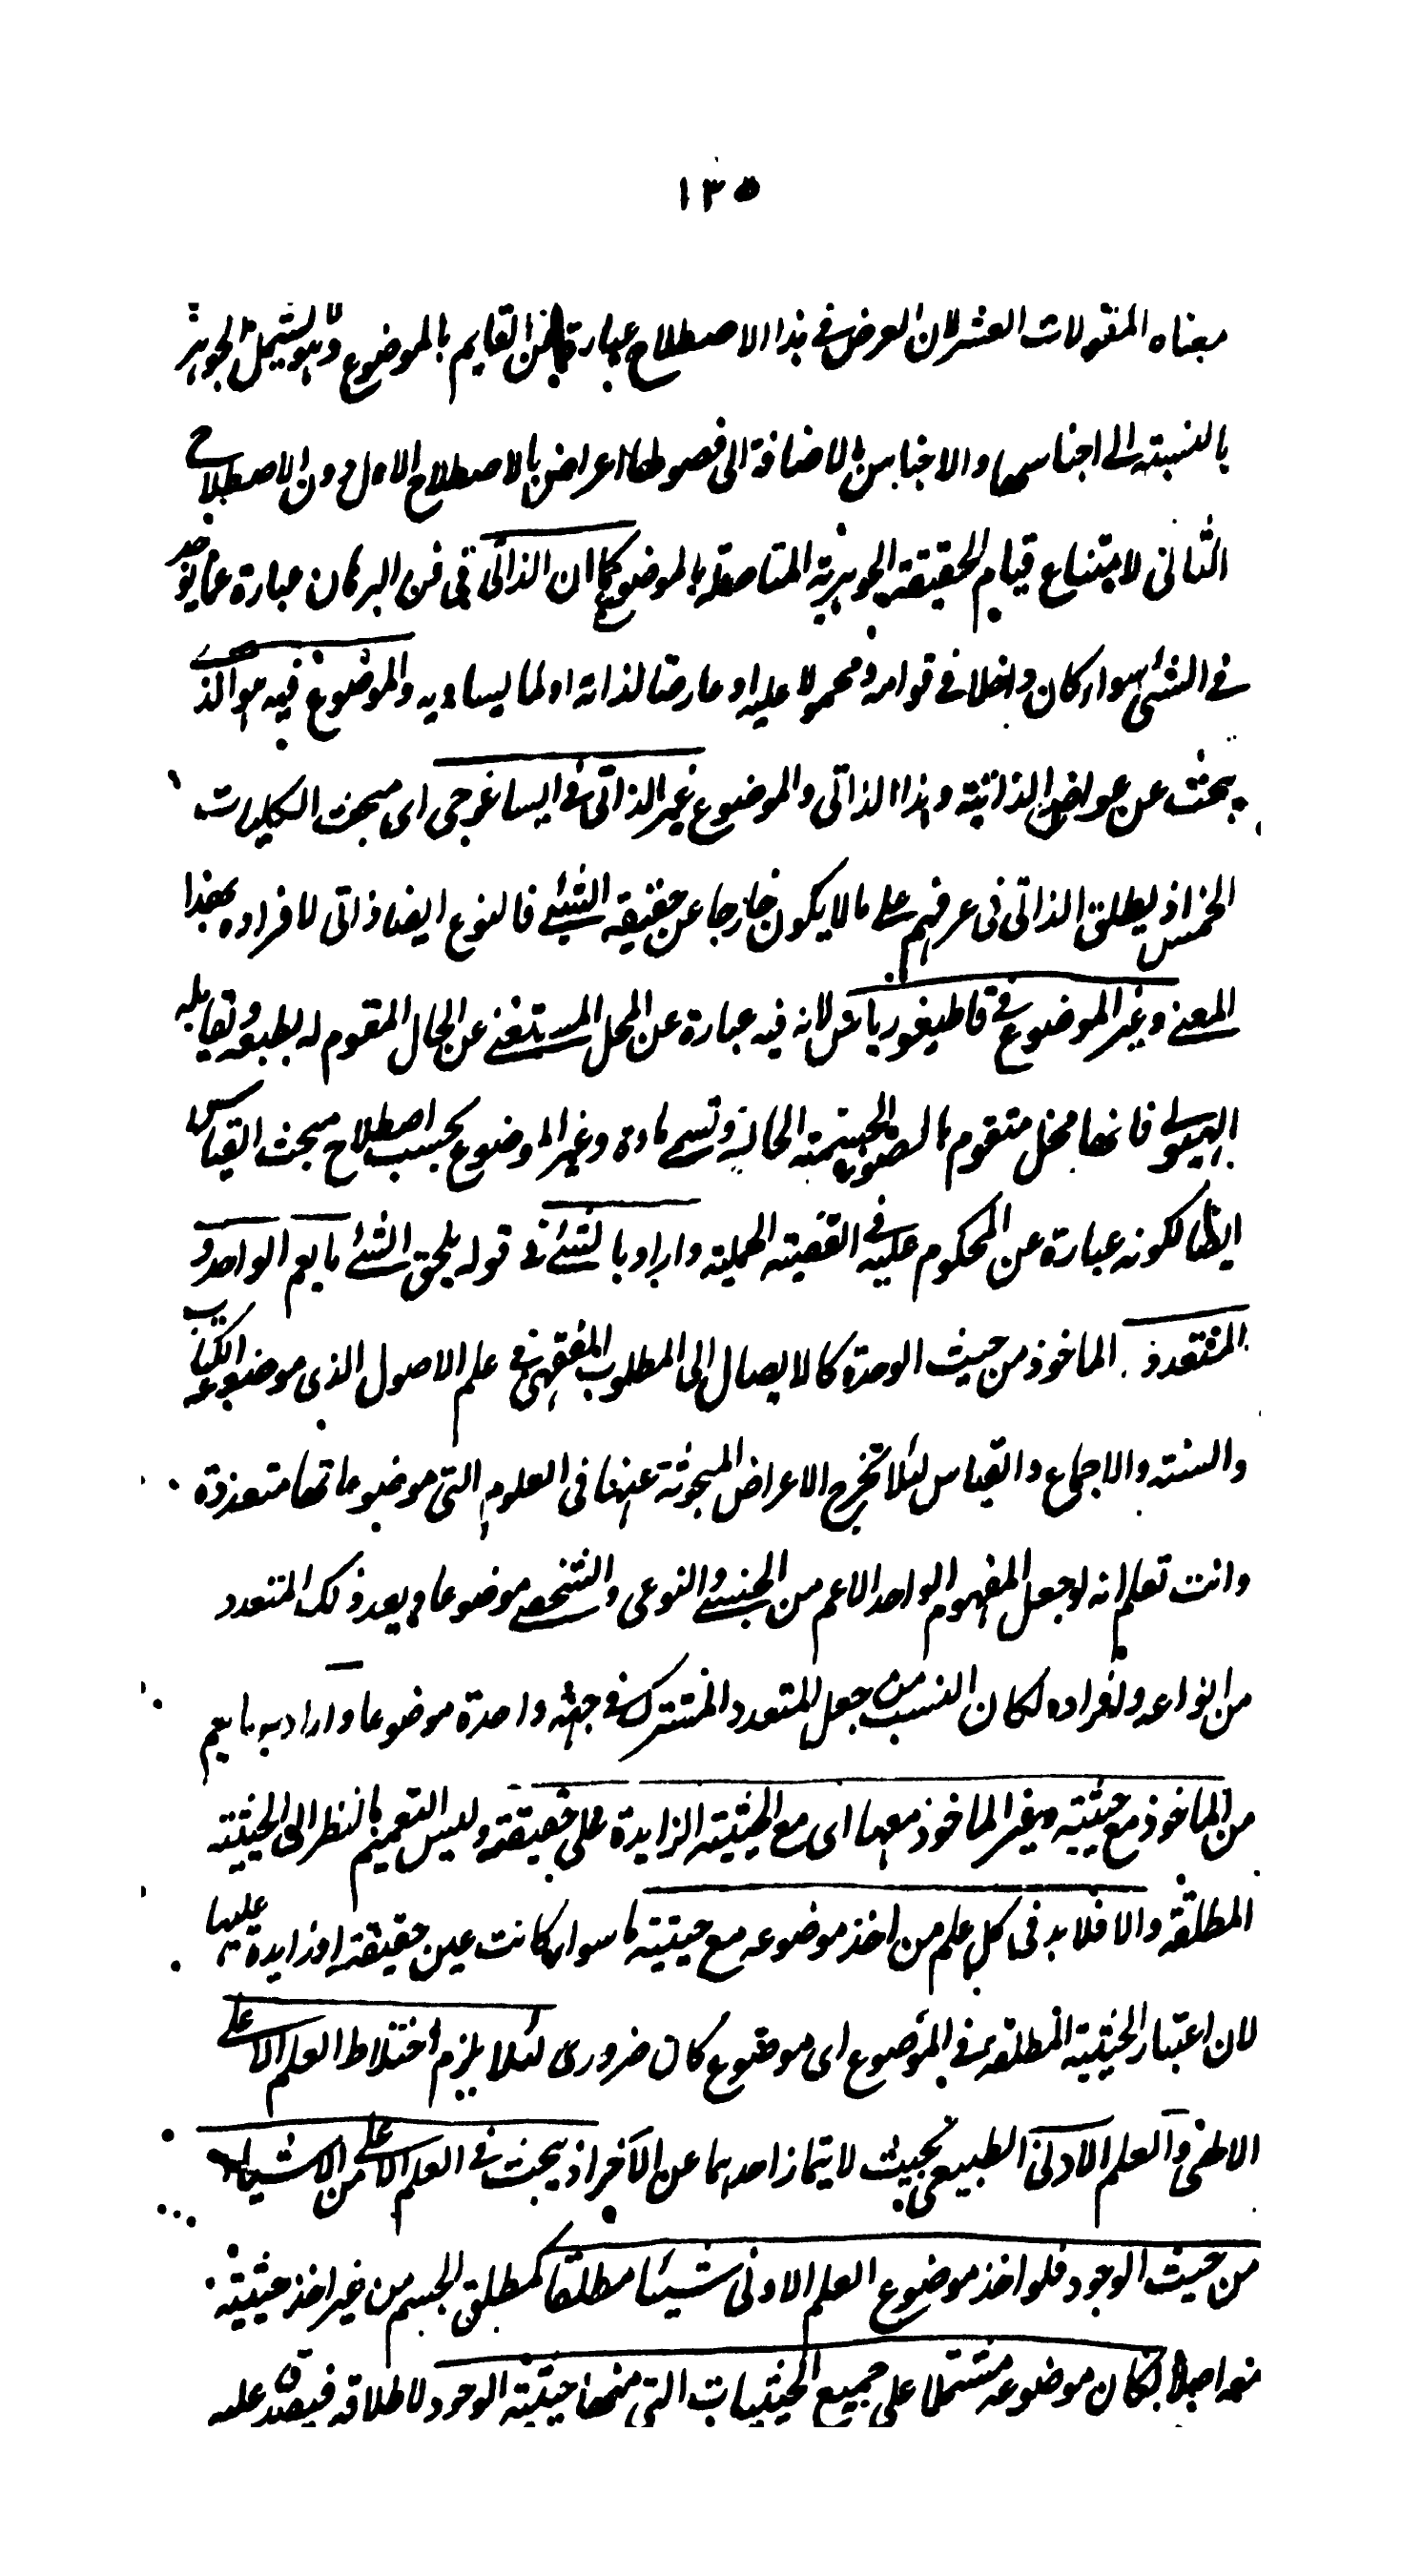 ١٣٥
معناه المقولات العشر لان العرض في هذا الاصطلاح عبارة عن القايم بالموضوع وهو لا يشمل الجوهر
بالنسبة الى اجناسها والاجناس بالاضافة الى فصولها اعراض بالاصطلاح الاول دون الاصطلاح
الثاني لامتناع قيام الحقيقة الجوهرية المتاصلة بالموضوع كما ان الذاتي في فن البرهان عبارة عما يوخذ
في الشئ سواء كان داخلا في قوامه ومحمولا عليه او عارضا لذاته او لما يساويه والموضوع فيه هو الذے
يبحث عن عوارضه الذاتية وهذا الذاتي والموضوع غير الذاتي في ايساغوجي اى مبحث الكليات
الخمس اذ يطلق الذاتي في عرفهم على ما لا يكون خارجا عن حقيقة الشئے فالنوع ايضا ذاتي لافراده بهذا
المعنے وغير الموضوع في قاطيغورياس لانه فيه عبارة عن المحل المستغنے عن الحال المقوم له بطبعه وتقابله
الهيولے فانها محل متقوم بالصورة الجسمية الحالة وتسمے مادة وغير الموضوع بحسب اصطلاح مبحث القياس
ايضا لكونه عبارة عن المحكوم عليه في القضية الحملية واراد بالشئے في قوله يلحق الشئے ما يعم الواحد و
المتعدد الماخوذ من حيث الوحدة كالايصال الى المطلوب الفقهي في علم الاصول الذى موضوعه الكتاب
والسنة والاجماع والقياس لئلا تخرج الاعراض المبحوثة عنها في العلوم التي موضوعاتها متعددة
وانت تعلم انه لو جعل المفهوم الواحد الاعم من الجنسے والنوعى والشخصے موضوعا ويعد ذلك المتعدد
من انواعه وافراده لكان انسب من جعل المتعدد المشترك في جهة واحدة موضوعا واراد به ما يعم
من الماخوذ مع حيثية وغير الماخوذ معها اى مع الحيثية الزايدة على حقيقة وليس التعميم بالنظر الى الحيثية
المطلقة والا فلا بد في كل علم من اخذ موضوعه مع حيثية ما سواء كانت عين حقيقة او زايدة عليها
لان اعتبار الحيثية المطلقة في الموضوع اى موضوع كان ضرورى لئلا يلزم اختلاط العلم الاعلے
الالهى والعلم الادنى الطبيعى بحيث لا يتماز احدهما عن الآخر اذ يبحث في العلم الاعلے من الاشياء
من حيث الوجود فلو اخذ موضوع العلم الادنى شيئا مطلقا كمطلق الجسم من غير اخذ حيثية
معه اصلا لكان موضوعه مشتملا على جميع الحيثيات التي منها حيثية الوجود لاطلاقه فيصدق عليه